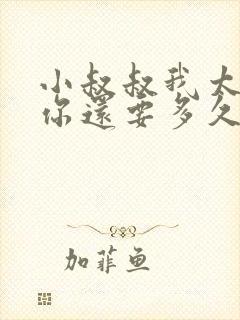 小叔叔我太
你還要多久
加菲鱼